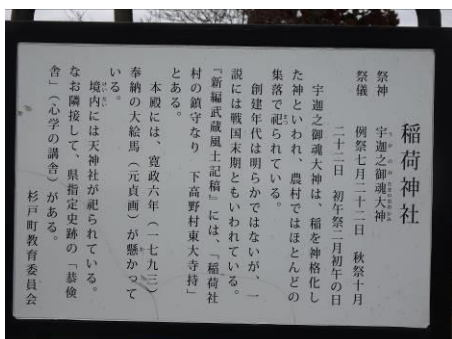 稲荷神社
祭神　宇迦之御魂大神
祭儀　例祭七月二十二日　秋祭十月
二十二日　初午祭二月初午の日
宇迦之御魂大神は、稲を神格化し
た神といわれ、農村ではほとんどの
集落で祀られている。
創建年代は明らかではないが、一
説には戦国末期ともいわれている。
『新編武蔵風土記稿』には、「稲荷社
村の鎮守なり　下高野村東大寺持」
とある。
本殿には、寛政六年（一七九三）
奉納の大絵馬（元貞画）が懸かって
いる。
境内には天神社が祀られている。
なお隣接して、県指定史跡の「恭倹
舎」（心学の講舎）がある。
杉戸町教育委員会